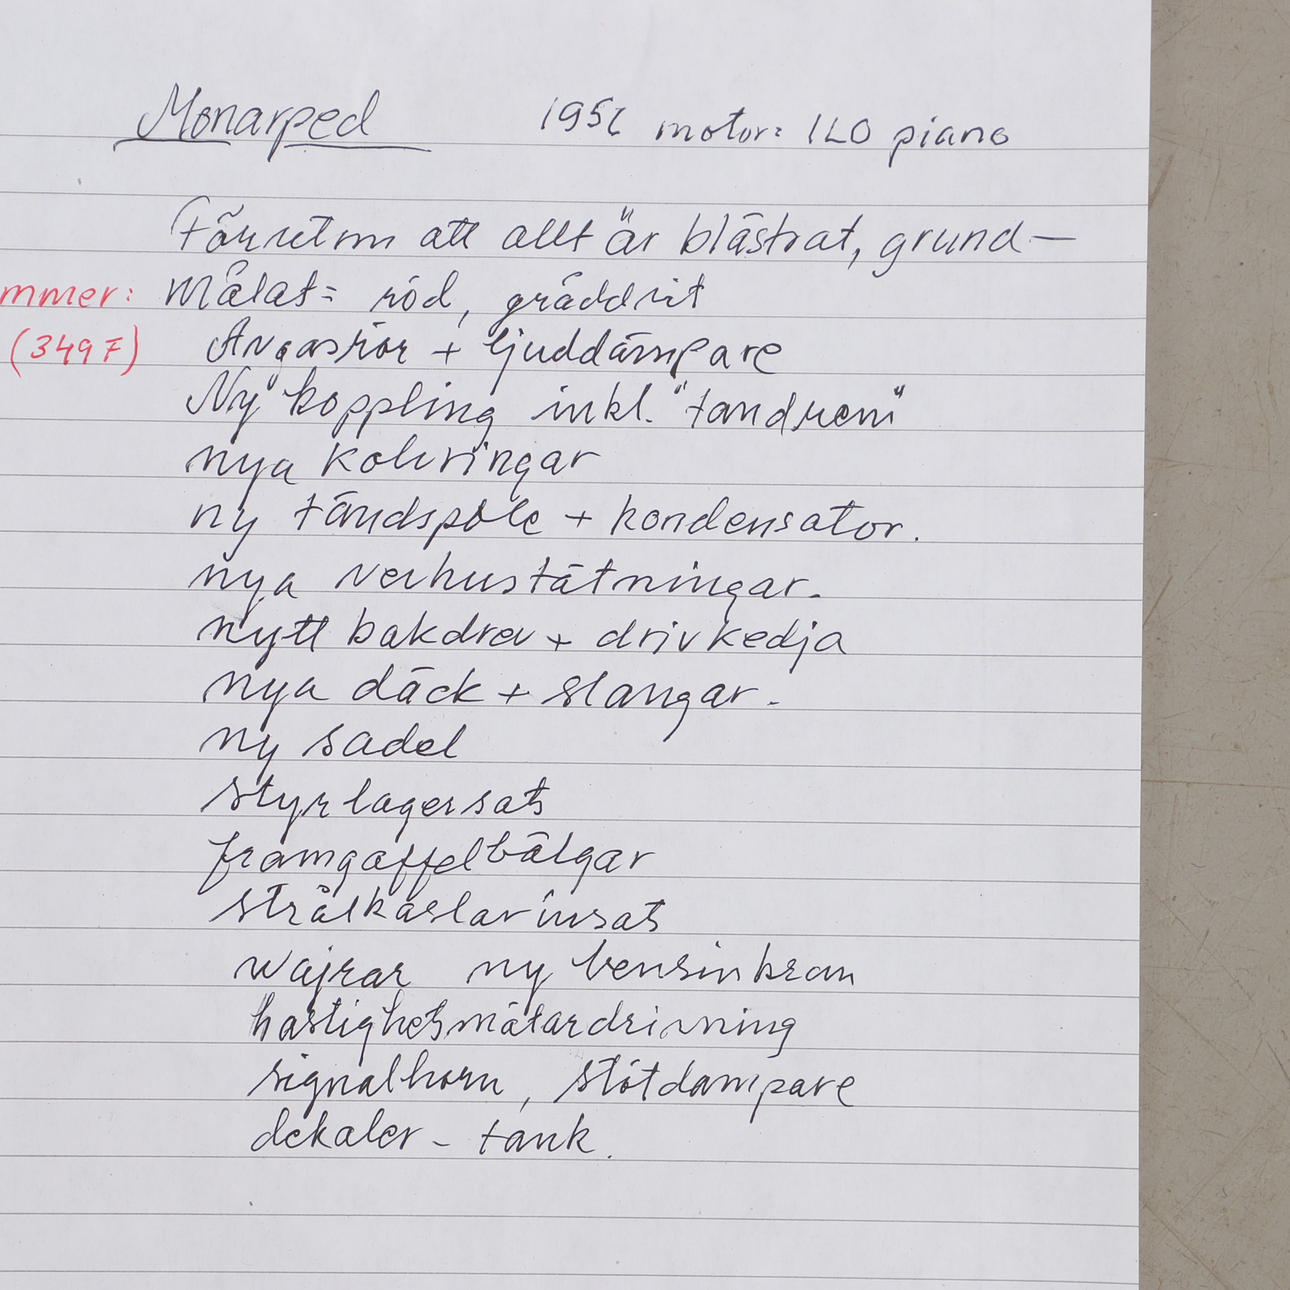 Monarped 1956 motor: ILO piano
Förutom att allt är blästrat, grund-
mmer: målat: röd, gräddvit
(349 F) Avgasrör + ljuddämpare
Ny koppling inkl. "tandrem"
nya kolvringar
ny tändspole + kondensator.
nya vevhustätningar.
nytt bakdrev + drivkedja
nya däck + slangar.
ny sadel
styrlagersats
framgaffelbälgar
strålkastarinsats
wajrar ny bensinkran
hastighetsmätardrivning
signalhorn, stötdämpare
dekaler - tank.